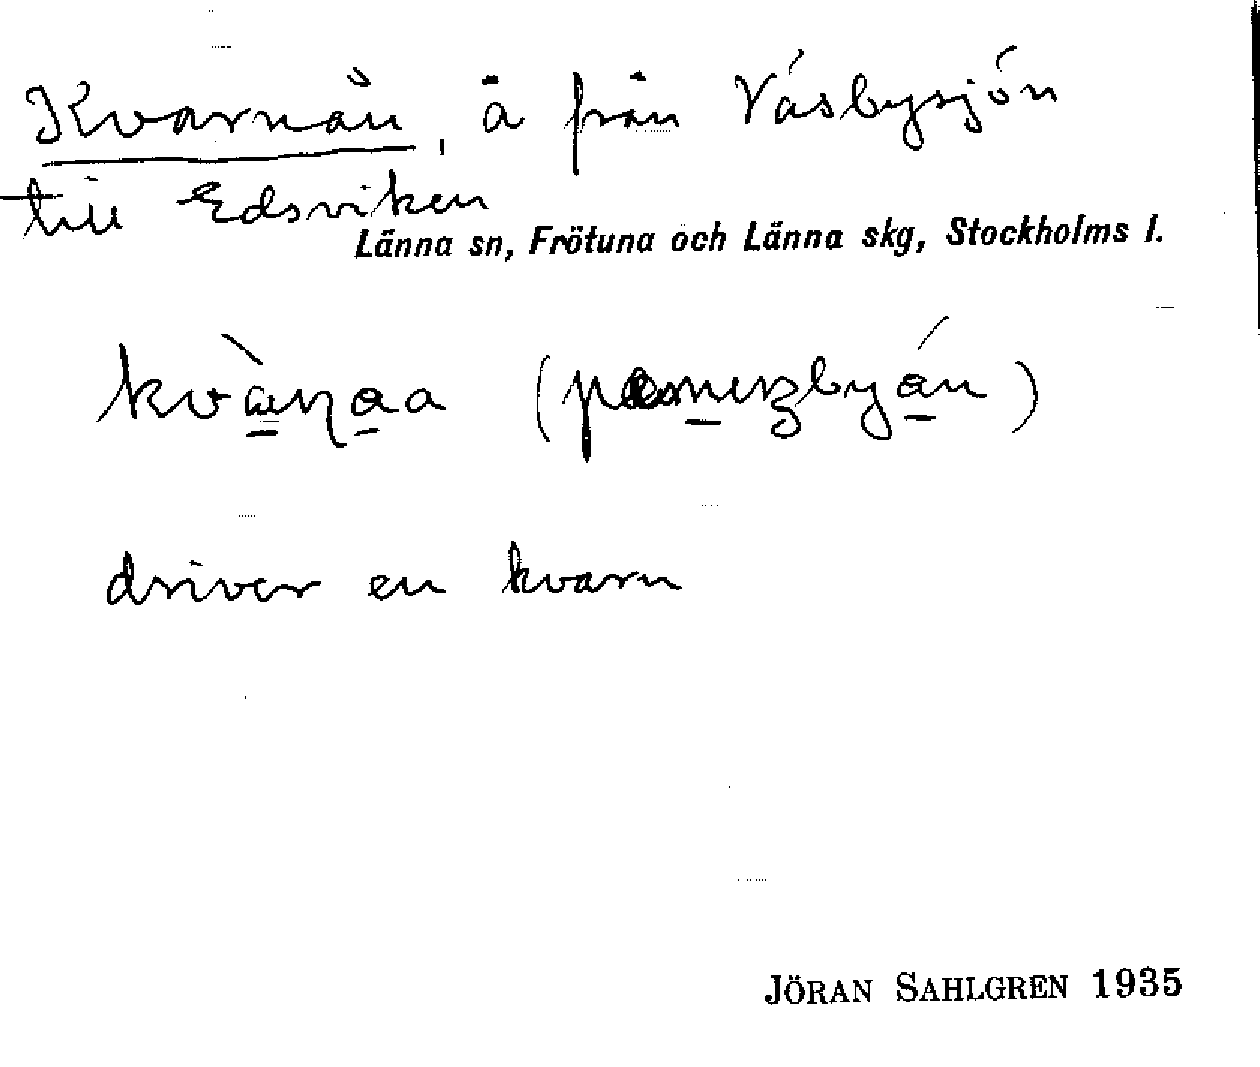 Kvarnån, å från Väsbysjön
till Edsviken
Länna sn, Frötuna och Länna skg, Stockholms l.
driver en kvarn
JÖRAN SAHLGREN 1935